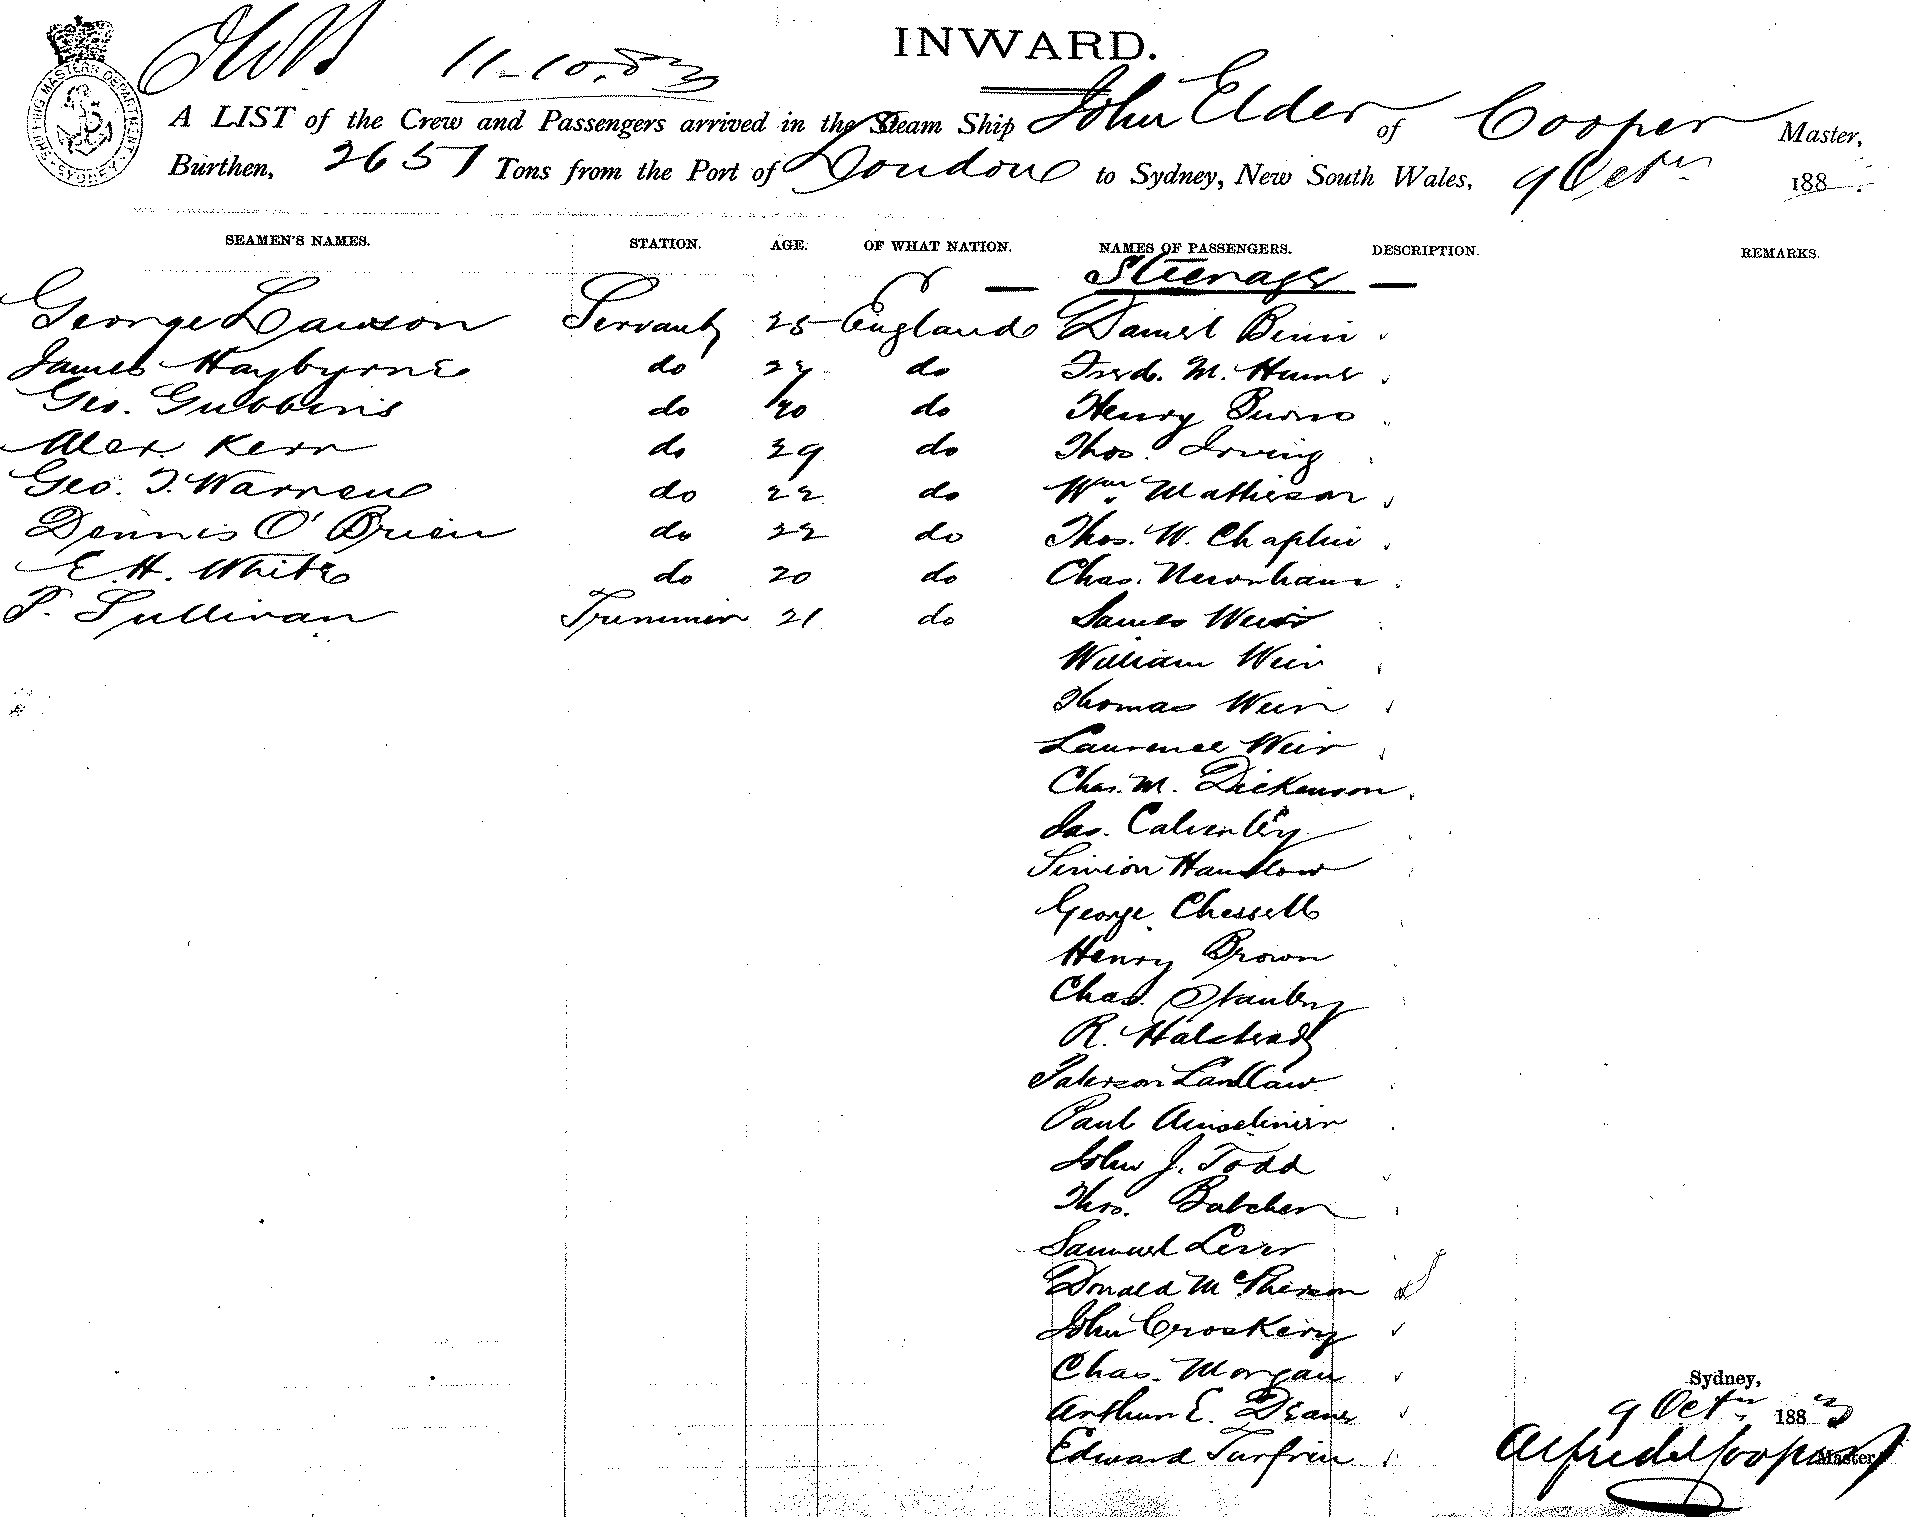 INWARD.
11-10.83
SHIPPING MASTERS DEPARTMENT SYDNEY
A LIST of the Crew and Passengers arrived in the Steam Ship John Elder of Cooper Master,
Burthen, 2651 Tons from the Port of London to Sydney, New South Wales, 9 Octr 188
SEAMEN'S NAMES. STATION. AGE. OF WHAT NATION. NAMES OF PASSENGERS. DESCRIPTION. REMARKS.
— Steerage —
George Lawson Servant 25 England Daniel Binn
James Haybyrne do 27 do Fred. M. Hume
Geo. Gubbins do 20 do Henry Burns
Alex. Kerr do 29 do Thos. Irving
Geo. T. Warren do 22 do Wm Matheson
Dennis O'Brien do 22 do Thos. W. Chaplin
E. H. White do 20 do Chas. Newnham
P. Sullivan Trimmer 21 do James Weir
William Weir
Thomas Weir
Laurence Weir
Chas. M. Dickenson
Jas. Calverley
Simion Hanslow
George Chessell
Henry Brown
Chas. Stanley
R. Halstead
Paterson Landlaw
Paul
John J. Todd
Thos. Batcher
Samuel Lever
Donald McPherson
John Croskery
Chas. Morgan
Arthur E. Deane
Edward Turfrin
Sydney,
9 Octr 1883
Alfred Cooper
Master